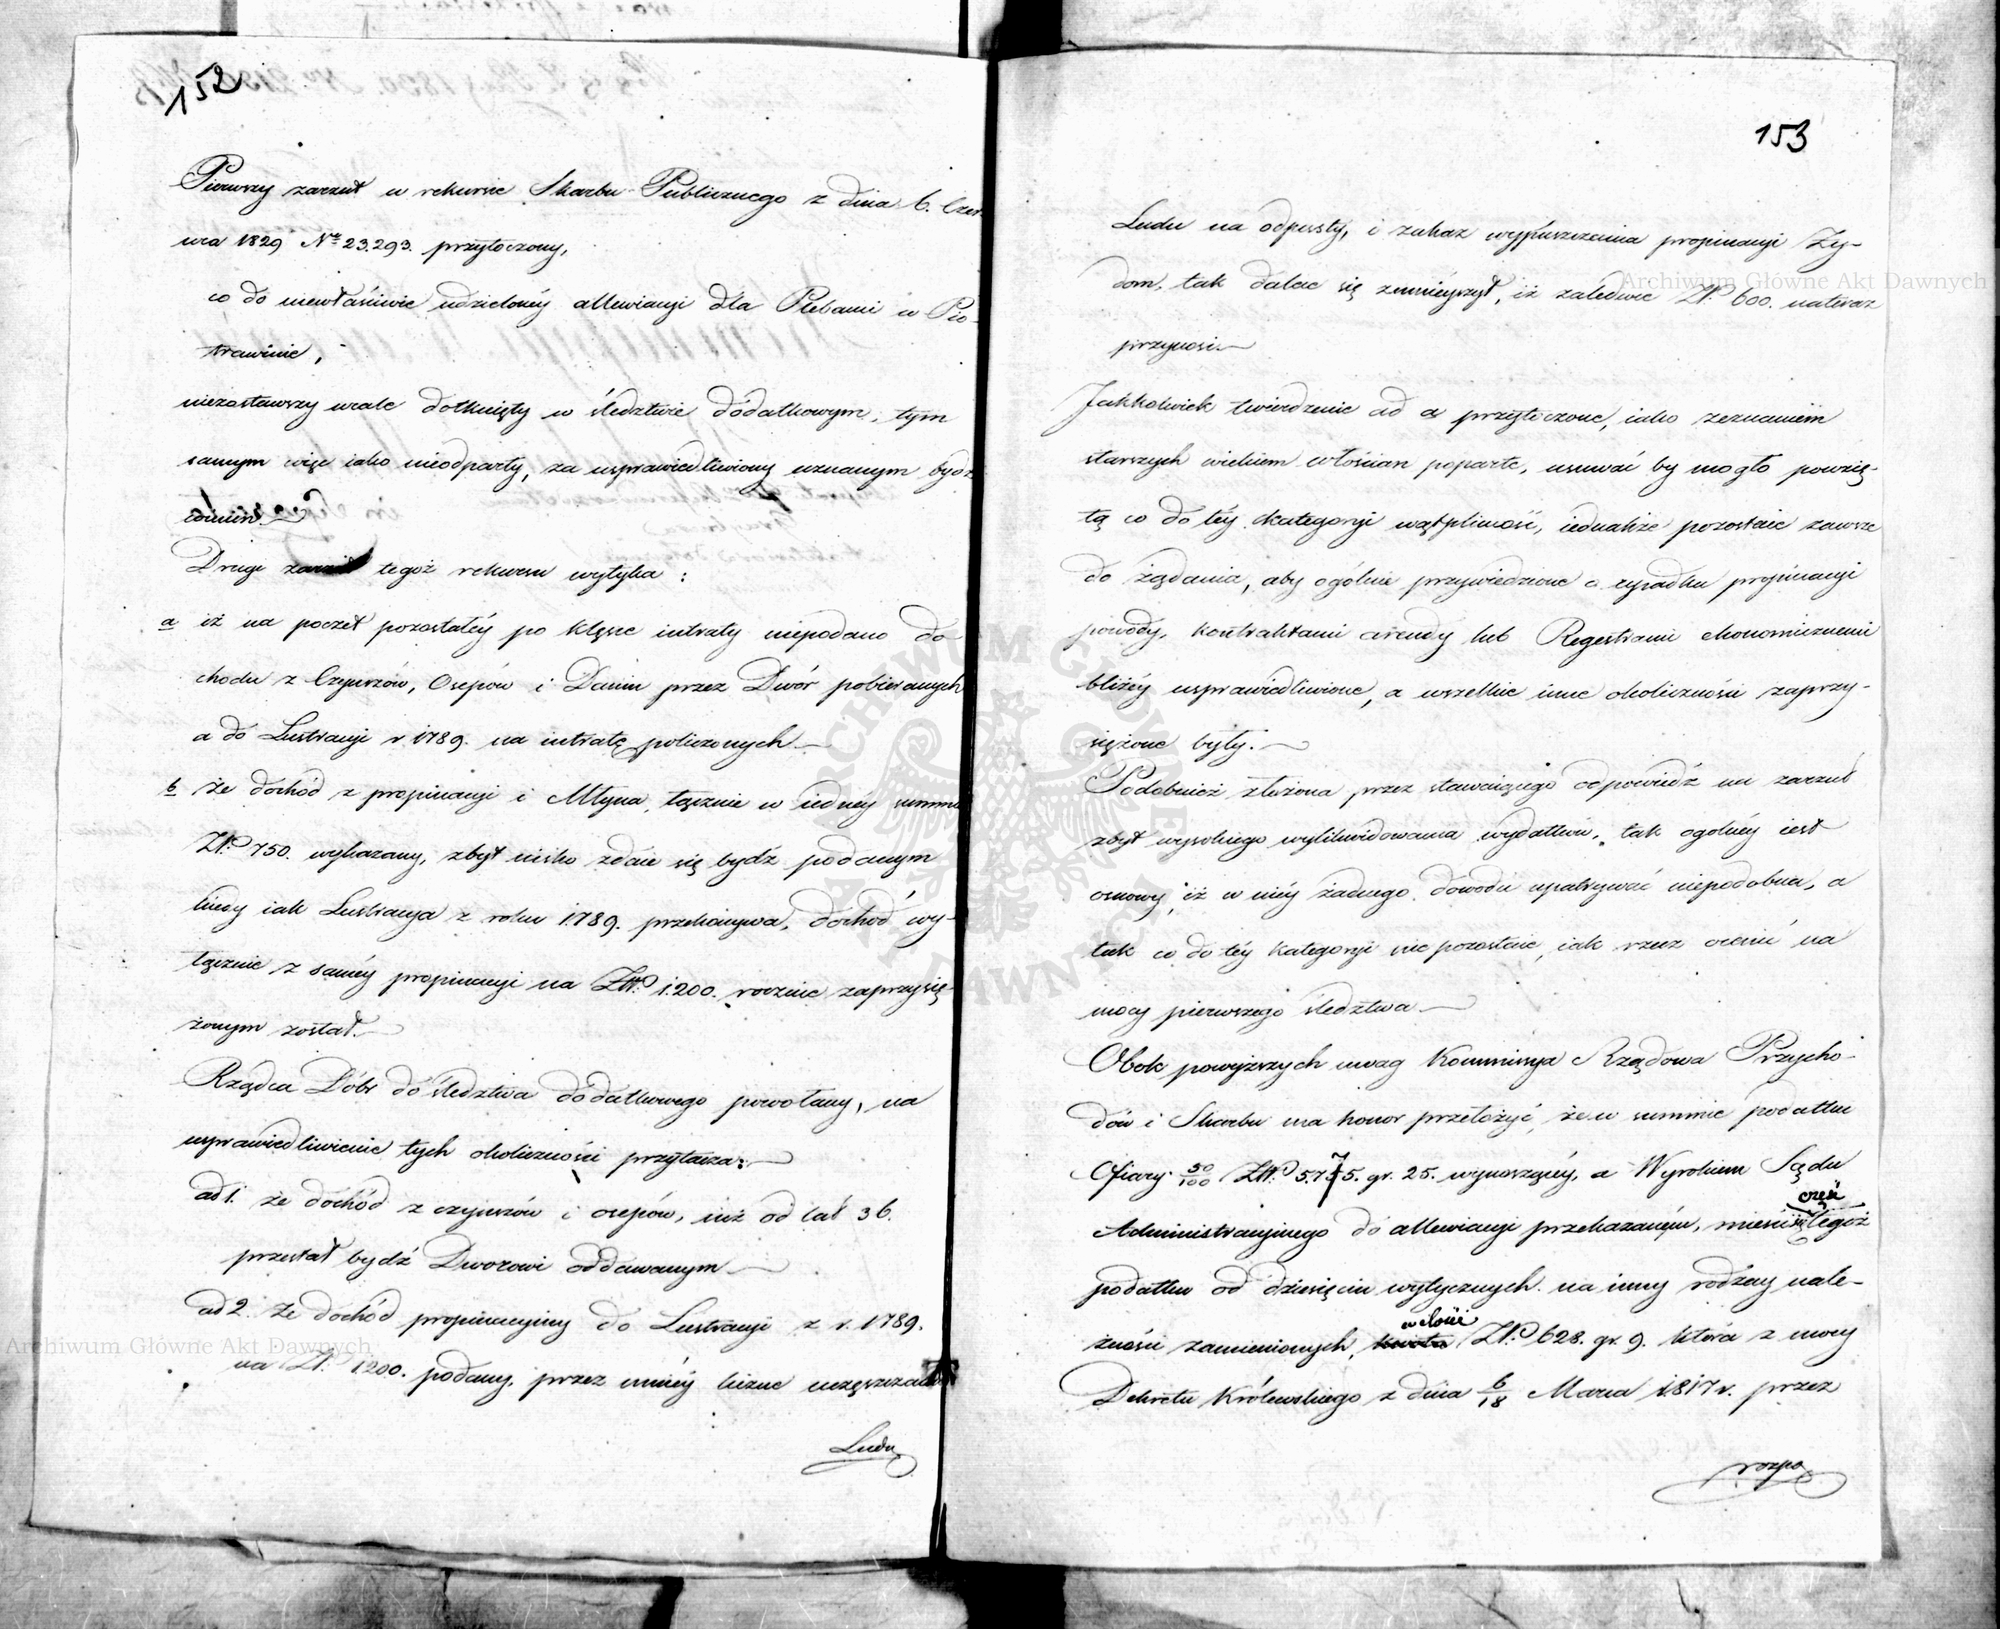 152
Pierwszy zarzut w rekursie Skarbu Publicznego z dnia 6. Czer-
wca 1829 Nro 23.293. przytoczony,
co do niewłaściwie udzielonéy allewiacyi dla Plebanii w Pio-
trawinie,
niezostawszy wcale dotknięty w śledztwie dodatkowym, tym
samym więc iako nieodparty, za usprawiedliwiony uznanym bydź
winien
Drugi zarzut tegoż rekursu wytyka:
a iż na poczet pozostałéy po klęsce intraty niepodano do-
chodu z Czynszów, Osepów i Danin przez Dwór pobieranych
a do Lustracyi r. 1789. na intratę policzonych
b że dochód z propinacyi i Młyna łącznie w iednéy summie
Złp. 750. wykazany, zbyt nisko zdaie się bydź podanym
kiedy iak Lustracya z roku 1789. przekonywa, dochód wy-
łącznie z saméy propinacyi na Złp. 1.200. rocznie zaprzysię-
żonym został.
Rządca Dóbr do śledztwa dodatkowego powołany, na
usprawiedliwienie tych okoliczności przytacza:
ad 1. że dochód z czynszów i osepów, iuż od lat 36.
przestał bydź Dworowi oddawanym
ad 2. że dochód propinacyiny do Lustracyi z r. 1789.
na Złp. 1200. podany, przez mniéy liczne uczęszczanie
Ludu
153
Ludu na odpusty, i zakaz wypuszczenia propinacyi Ży-
dom, tak dalece się zmnieyszył, iż zaledwie Złp. 600. nateraz
przynosi.
Jakkolwiek twierdzenie ad a przytoczone, iako zeznaniem
starszych wiekiem włościan poparte, usuwać by mogło powzię-
tą co do téy kategoryi wątpliwość, iednakże pozostaie zawsze
do żądania, aby ogólnie przywiedzione o upadku propinacyi
powody, kontraktami arendy lub Regestrami ekonomicznemi
bliżéy usprawiedliwione, a wszelkie inne okoliczności zaprzy-
siężone były.
Podobnież złożona przez stawaiącego odpowiedź na zarzut
zbyt wysokiego wylikwidowania wydatków, tak ogolnéy iest
osnowy, iż w niéy żadnego dowodu upatrywać niepodobna, a
tak co do téy kategoryi nie pozostaie, iak rzecz ocenić na
mocy pierwszego śledztwa
Obok powyższych uwag Kommissya Rządowa Przycho-
dów i Skarbu ma honor przełożyć, że w summie podatku
Ofiary 50/100 Złp. 5.775. gr. 25. wynoszącéy, a Wyrokiem Sądu
część
Administracyinego do allewiacyi przekazanéy, mieści się tegoż
podatku od dziesięcin wytycznych na inny rodzay nale-
w ilości
żności zamienionych, kwota Złp. 628. gr. 9. która z mocy
Dekretu Królewskiego z dnia 6/18 Marca 1817 r. przez
rozpo
Archiwum Główne Akt Dawnych
Archiwum Główne Akt Dawnych
ARCHIWUM GŁÓWNE AKT DAWNYCH